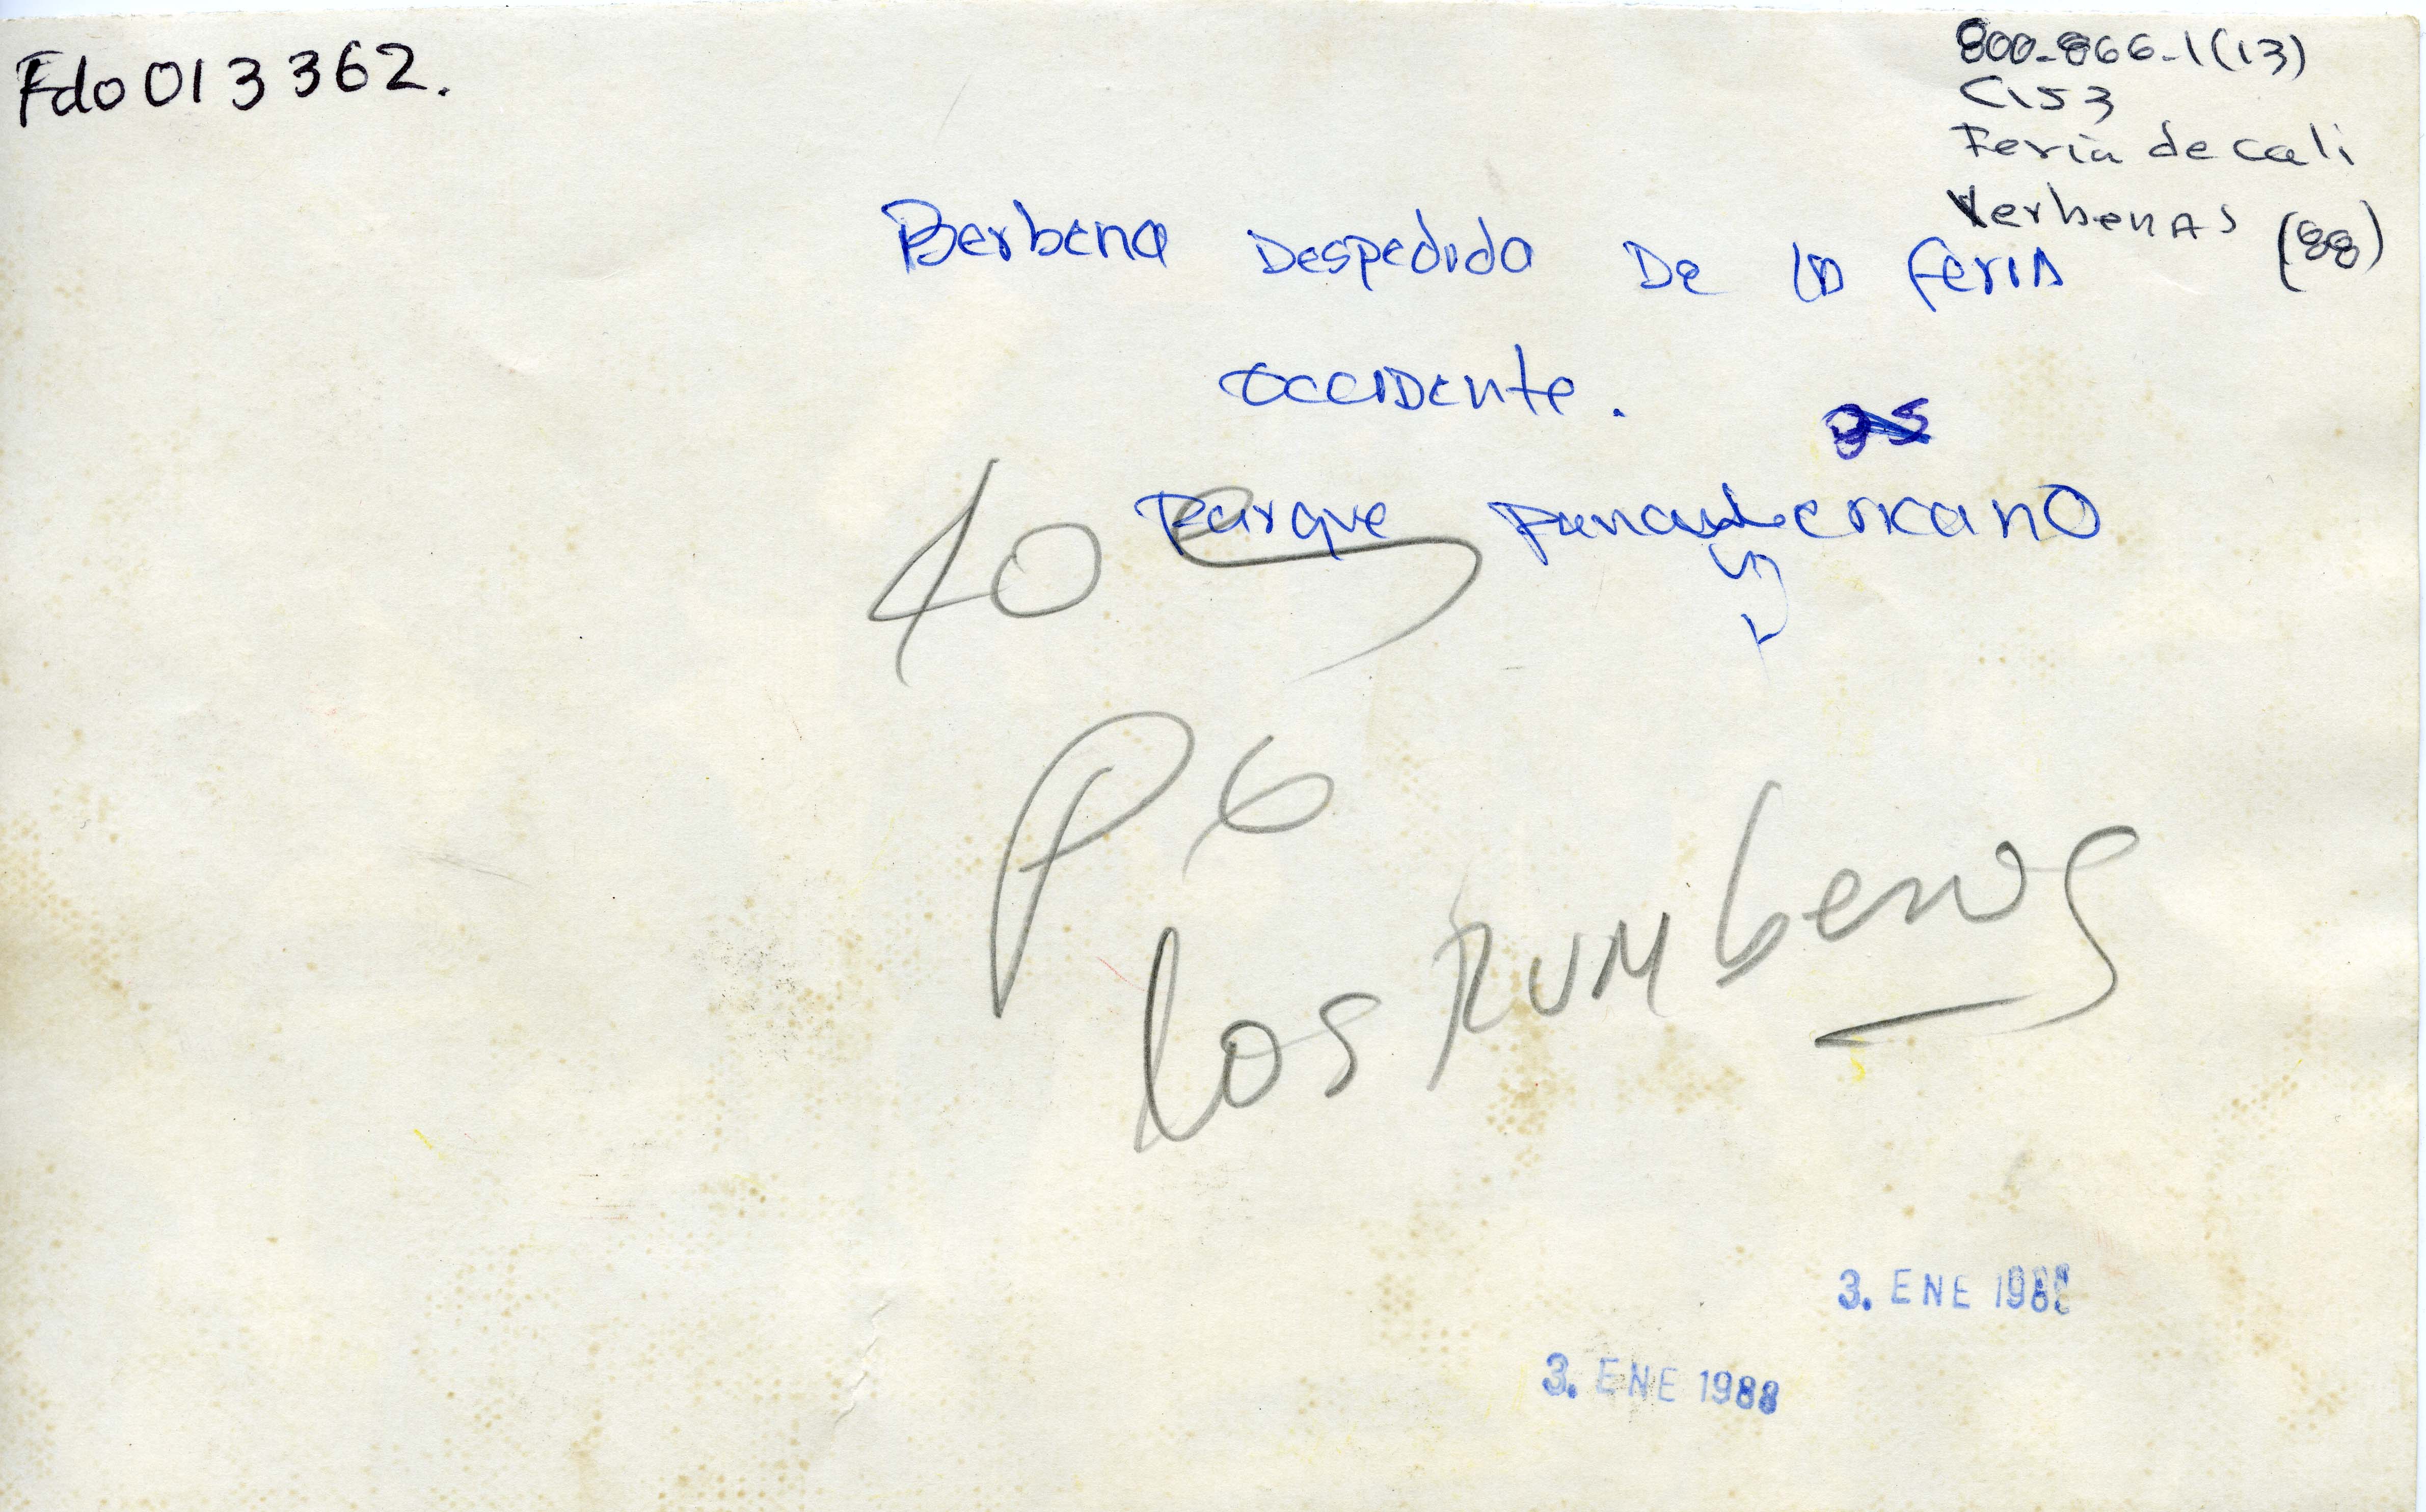 Fdo 013362.
800-866-1(13)
C153
Feria de Cali
VerbenAs (88)
Berbena Despedida De la feria
occiDente.
parque panamericano
40
P 6
los RUMberos
3. ENE 1988
3. ENE 1988